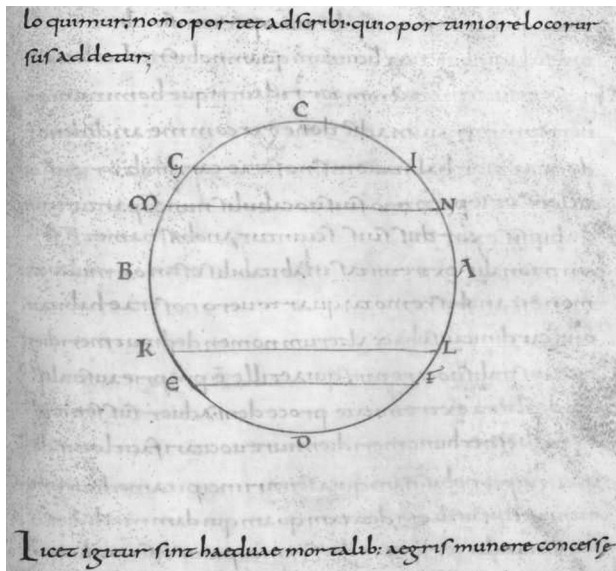 lo quimur; non oportet adscribi· qui oportuniore locorur
sus addetur;
C
G I
M N
B A
K L
E F
D
Licet igitur sint hae duae mortalib: aegris munere concesse